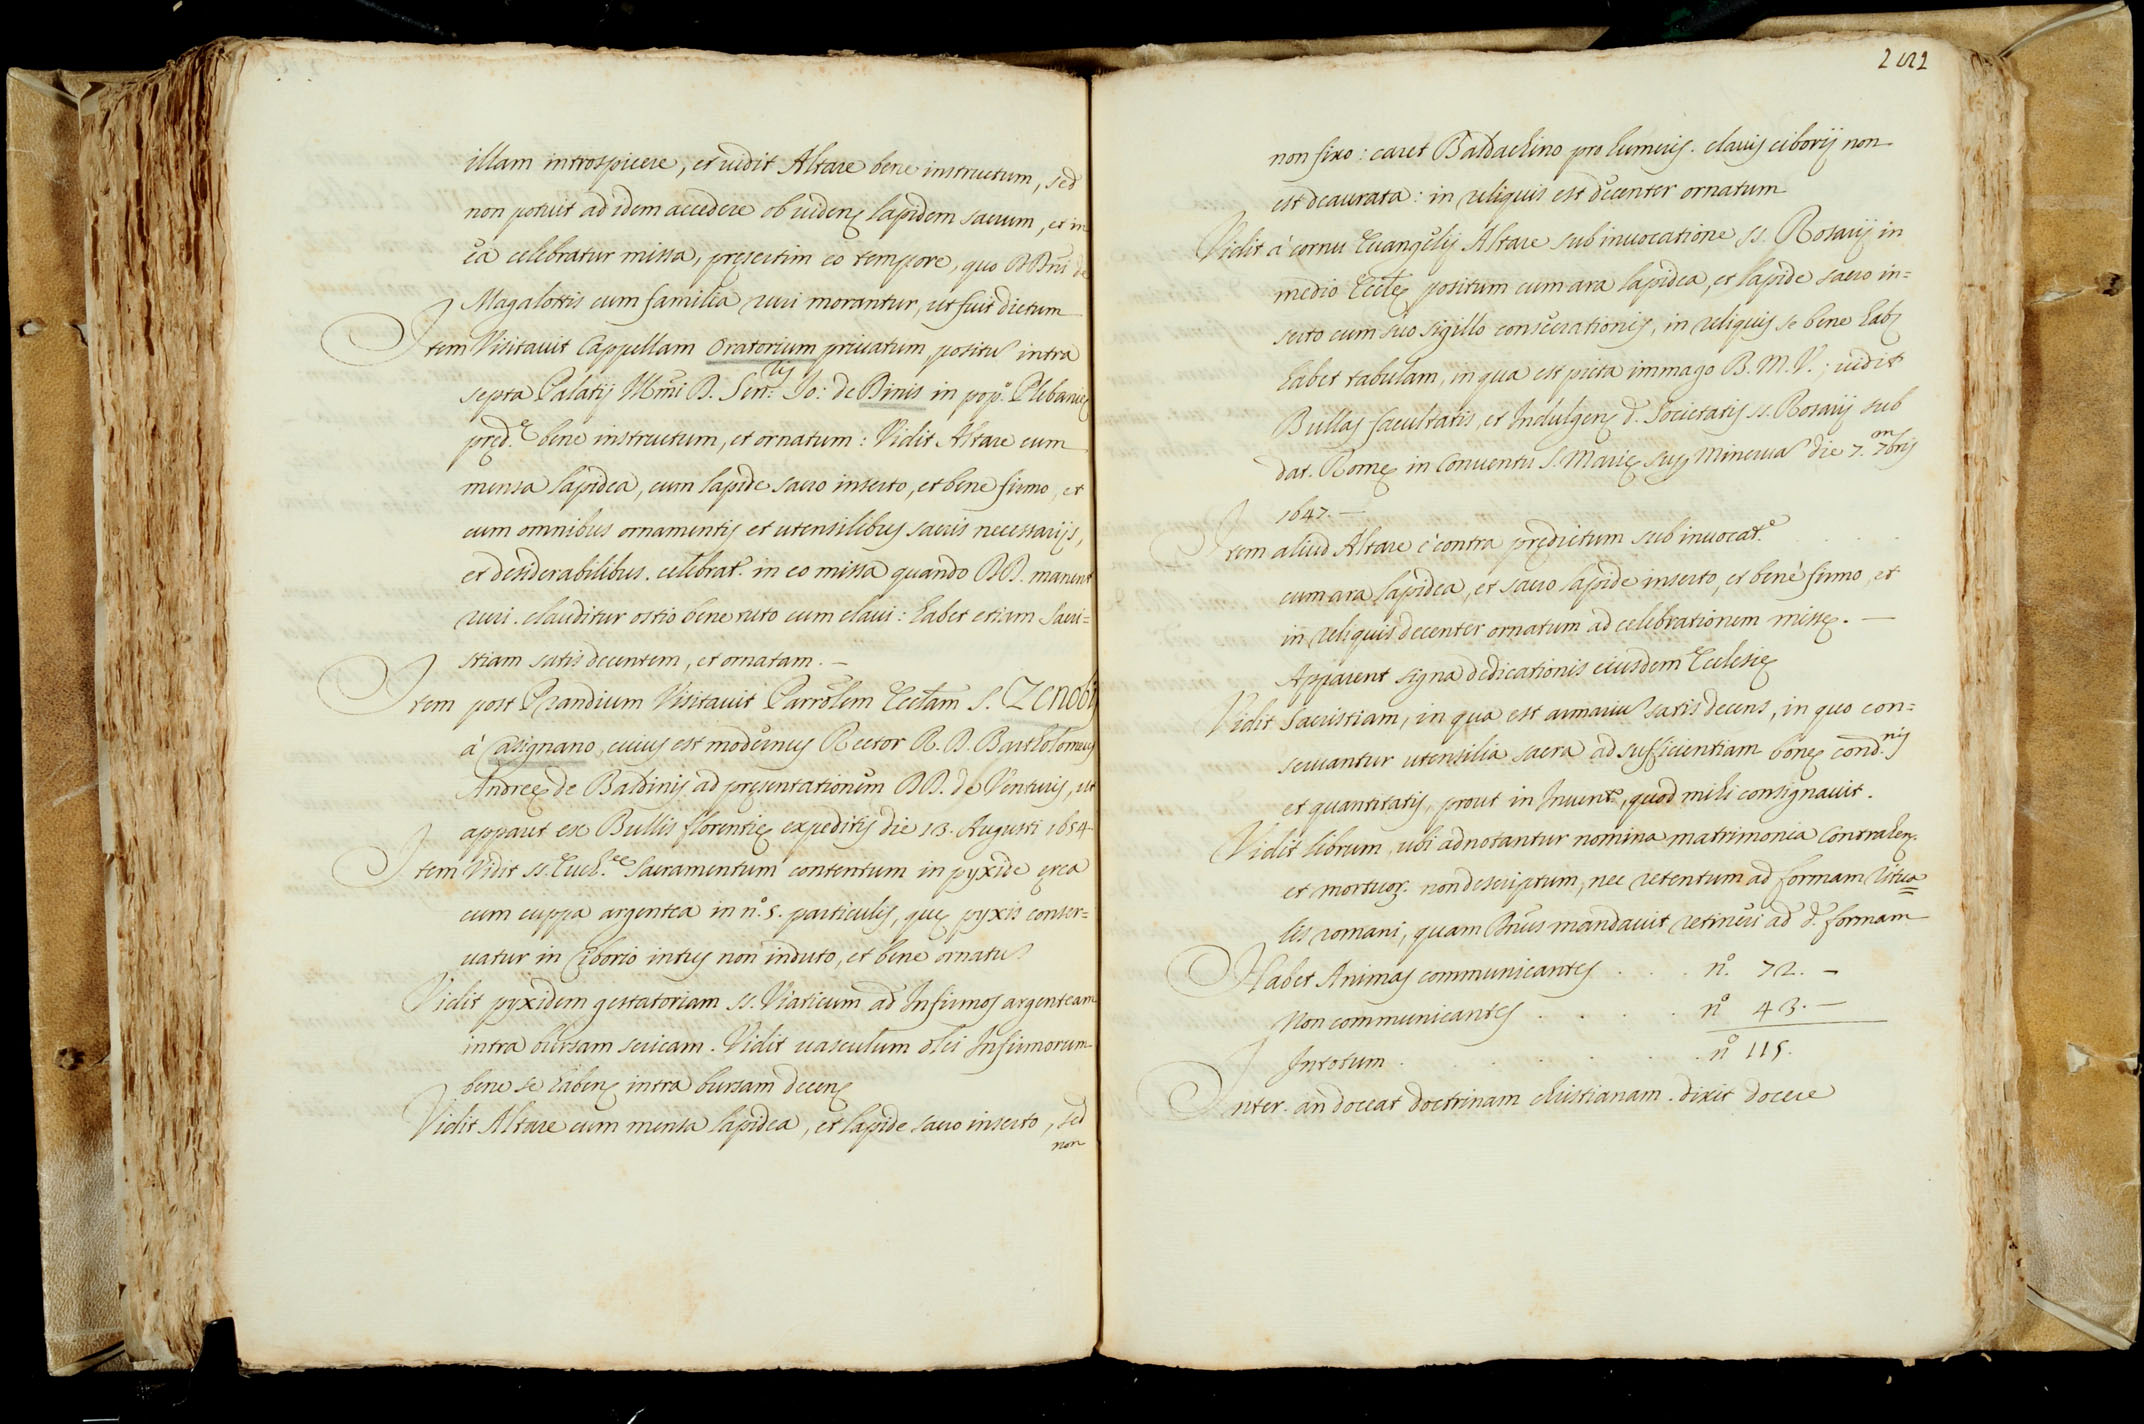 illam introspicere, et vidit Altare bene instructum, sed
non potuit ad idem accedere ob videnꝫ lapidem sacrum, et in
ea celebratur missa, pręsertim eo tempore, quo DDñi de
Magalottis cum familia ruri morantur, ut fuit dictum
Item Visitavit Cappellam Oratorium privatum positū intra
septa Palatij Illmĩ D. Sen:rij Jo: de Binis in pop.º Plebanię
pręd.ę bene instructum, et ornatum: Vidit Altare cum
mensa lapidea, cum lapide sacro inserto, et bene firmo, et
cum omnibus ornamentis et utensilibus sacris necessarijs,
et desiderabilibus. celebrat.r in eo missa quando DD. manent
ruri. clauditur ostio bene tuto cum clavi: habet etiam Sacri=
stiam satis decentem, et ornatam. —
Item post Prandium Visitavit Parrõlem Eccłam S. Zenobij
à Casignano, cuius est modernus Rector R. D. Bartholomeus
Andreę de Baldinis ad pręsentationem DD. de Venturis, ut
apparet ex Bullis florentię expeditis die 13. Augusti 1654.
Item Vidit SS. Euch.ęę Sacramentum contentum in pyxide ęrea
cum cuppa argentea in n.º 5. particulis, quę pyxis conser=
vatur in Ciborio intus non induto, et bene ornatū
Vidit pyxidem gestatoriam SS. Viaticum ad Infirmos argenteam
intra bursam sericam. Vidit vasculum olei Infirmorum
bene se habenꝫ intra bursam decenꝫ
Vidit Altare cum mensa lapidea, et lapide sacro inserto, sed
non
2022
non fixo: caret Baldachino pro humeris. clavis ciborij non
est deaurata: in reliquis est decenter ornatum
Vidit à cornu Evangelij Altare sub invocatione SS. Rosarij in
medio Eccłę positum cum ara lapidea, et lapide sacro in=
serto cum suo sigillo consecrationis, in reliquis se bene habꝫ
habet tabulam, in qua est picta immago B. M. V.; vidit
Bullas facultatis, et Indulgenꝫ d. Societatis SS. Rosarij sub
dat. Romę in Conventu S. Marię sup. Minervā die 7. 7mbris
1647. —
Item aliud Altare è contra prędictum sub invocat.e . . . .
cum ara lapidea, et sacro lapide inserto, et benè firmo, et
in reliquis decenter ornatum ad celebrationem missę. —
Apparent signa dedicationis eiusdem Ecclesię
Vidit Sacristiam, in qua est armariū satis decens, in quo con=
servantur utensilia sacra ad sufficientiam bonę cond.nis
et quantitatis, prout in Invent.º, quod mihi consignavit.
Vidit librum, ubi adnotantur nomina matrimonia Contrahen.
et mortuor. non descriptum, nec retentum ad formam Ritua=
lis romani, quam Dñus mandavit retineri ad d. formam
Habet Animas communicantes . . . . nº. 72. —
Non communicantes . . . . . nº 43. —
In totum . . . . . . nº 115.
Inter. an doceat doctrinam christianam. dixit docere